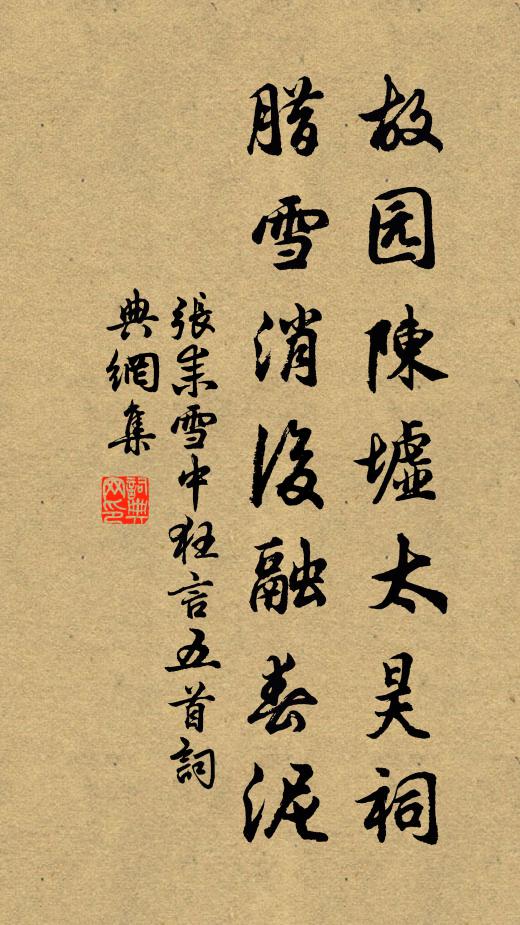 故园陳墟太昊祠
腊雪消後融春泥
張耒雪中狂言五首詞
典網集
詞典網印